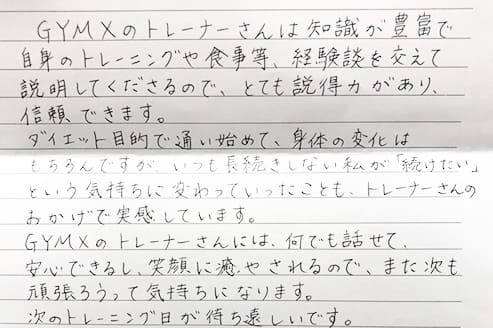 GYMXのトレーナーさんは知識が豊富で
自身のトレーニングや食事等、経験談を交えて
説明してくださるので、とても説得力があり、
信頼できます。
ダイエット目的で通い始めて、身体の変化は
もちろんですが、いつも長続きしない私が「続けたい」
という気持ちに変わっていったことも、トレーナーさんの
おかげで実感しています。
GYMXのトレーナーさんには、何でも話せて、
安心できるし、笑顔に癒やされるので、また次も
頑張ろうって気持ちになります。
次のトレーニング日が待ち遠しいです。